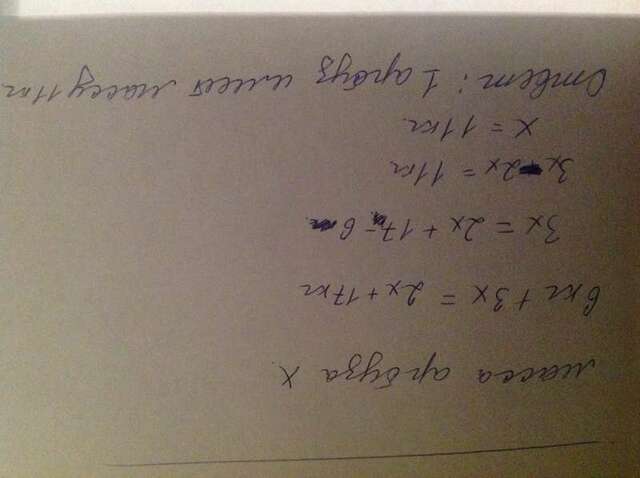 масса арбуза x
6кг + 3x = 2x + 17кг
3x = 2x + 17 - 6
3x - 2x = 11кг
x = 11кг
Ответ: 1 арбуз имеет массу 11кг